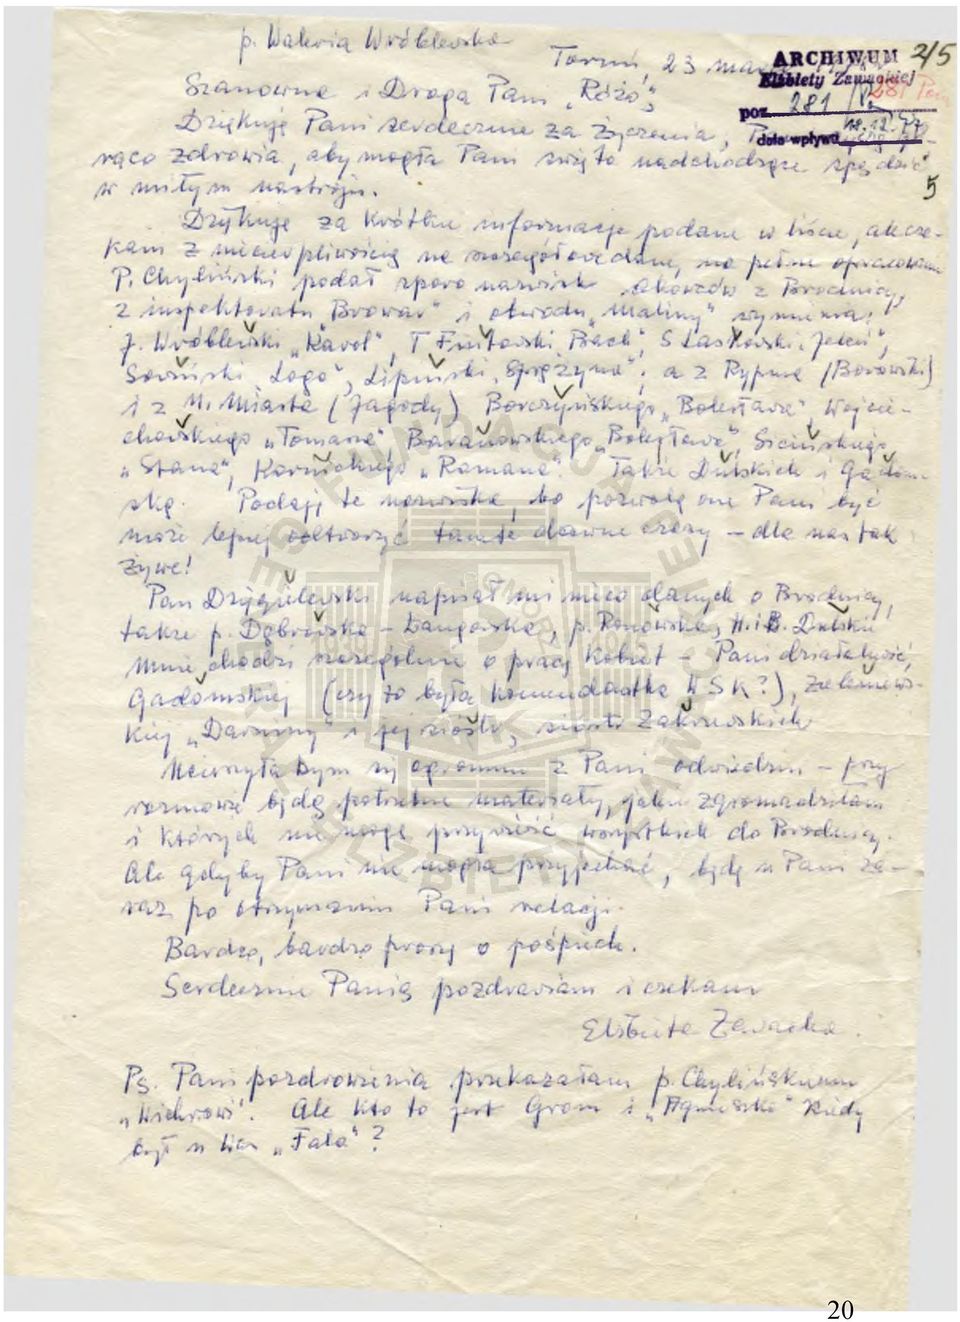 p. Waleria Wróblewska
Toruń, 23
ARCHIWUM
Elżbiety Zawackiej
2/5
281 Pom
poz. 281
data wpływu 18.12.97
5
Szanowna i Droga Pani „Różo”,
Dziękuję Pani serdecznie za życzenia,
rąco zdrowia, aby mogła Pani święta nadchodzące spędzić
w miłym nastroju.
Dziękuję za krótkie informacje podane w liście, ale cze-
kam z niecierpliwością na szczegółowe dane, na pełne opracowanie
P. Chyliński podał sporo nazwisk akowców z Brodnicy,
z inspektoratu „Browar” i obwodu „Maliny” wymienia:
J. Wróblewski „Karol”, T. Piach”, S. Laskowski „Jeleń”,
„Logo”, Lipiński „Sprężyna”, a z Rypina (Borowski)
i z N. Miasta (Jagody) Borczyńskiego „Bolesława”, Wojcie-
chowskiego „Tomasza”, Baranowskiego „Bolesława”, Sicińskiego
„Stana”, Karnickiego „Romana”. Także Dulskich i Gadom-
ską. Podaję te nazwiska, bo pozwolą one Pani być
może lepiej odtworzyć tamte dawne czasy – dla nas tak
żywe!
Pan Dzięgielewski napisał mi nieco danych o Brodnicy,
także p. Dąbrowska – p. H. i B. Dulskie
Mnie chodzi szczególnie o pracę kobiet – Pani działalność,
Gadomskiej (czy to była komendantka WSK?),
kiej „Danuny” i jej siostry, sióstr Zakrzewskich
Ucieszyłabym się ogromnie z Pani odwiedzin – przy
rozmowie będą potrzebne materiały, jakie zgromadziłam
i których nie mogę przywieźć wszystkich do Brodnicy.
Ale gdyby Pani nie mogła przyjechać, będę u Pani za-
raz po otrzymaniu Pani relacji.
Bardzo, bardzo proszę o pośpiech.
Serdecznie Panią pozdrawiam i czekam
Elżbieta Zawacka.
Ps. Pani pozdrowienia przekazałam p. Chylińskiemu
„Wichrowi”. Ale kto to jest Grom i „Agnieszka” kiedy
był u Was „Fala”?
FUNDACJA GENERAŁ ELŻBIETY ZAWACKIEJ
20